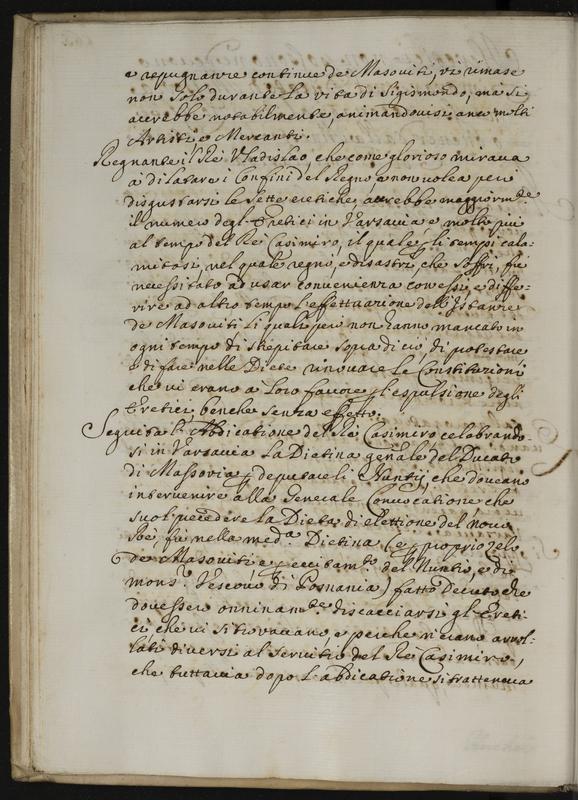 e repugnanze continue de Masoviti, vi rimase
non solo durante la vita di Sigismondo, ma si
accrebbe notabilmente, animandovisi anco molti
Artisti e Mercanti.
Regnante il Rè Vladislao, che come glorioso mirava
à dilatare i Confini del Regno, e non volea però
disgustarsi le Sette eretiche, accrebbe maggiorm.te
il numero degl'Eretici in Varsavia e molto più
al tempo del Rè Casimiro, il quale p li tempi cala:
mitosi, nel quale regnò, e disastri, che soffrì, fù
necessitato ad usar convenienza con essi, e diffe:
rire ad altro tempo l'effettuazione dell'Istanze
de Masoviti li quali però non hanno mancato in
ogni tempo di strepitare sopra di ciò, di protestare
e di fare nelle Diete rinovare le Constitutioni
che vi erano à loro favore p l'espulsione degli
Eretici, benche senza effetto.
Seguita l'Abdicatione del Rè Casimiro, celebrando:
si in Varsavia la Dietina gen̄ale del Ducato
di Massovia p deputare li Nuntij, che doveano
intervenire alla Generale Convocatione, che
suol precedere la Dieta di elettione del novo
Rè, fù nella med.a Dietina (e p proprio zelo
de Masoviti e p eccitam.to del Nuntio, e di
mons.r Vescovo di Posnania) fatto Decreto che
dovessero onninam.te discacciarsi gl'Ereti:
ci, che vi si trovavano, e perche n'erano arrol:
lati diversi al servitio del Rè Casimiro,
che tuttavia dopo l'abdicatione si tratteneva